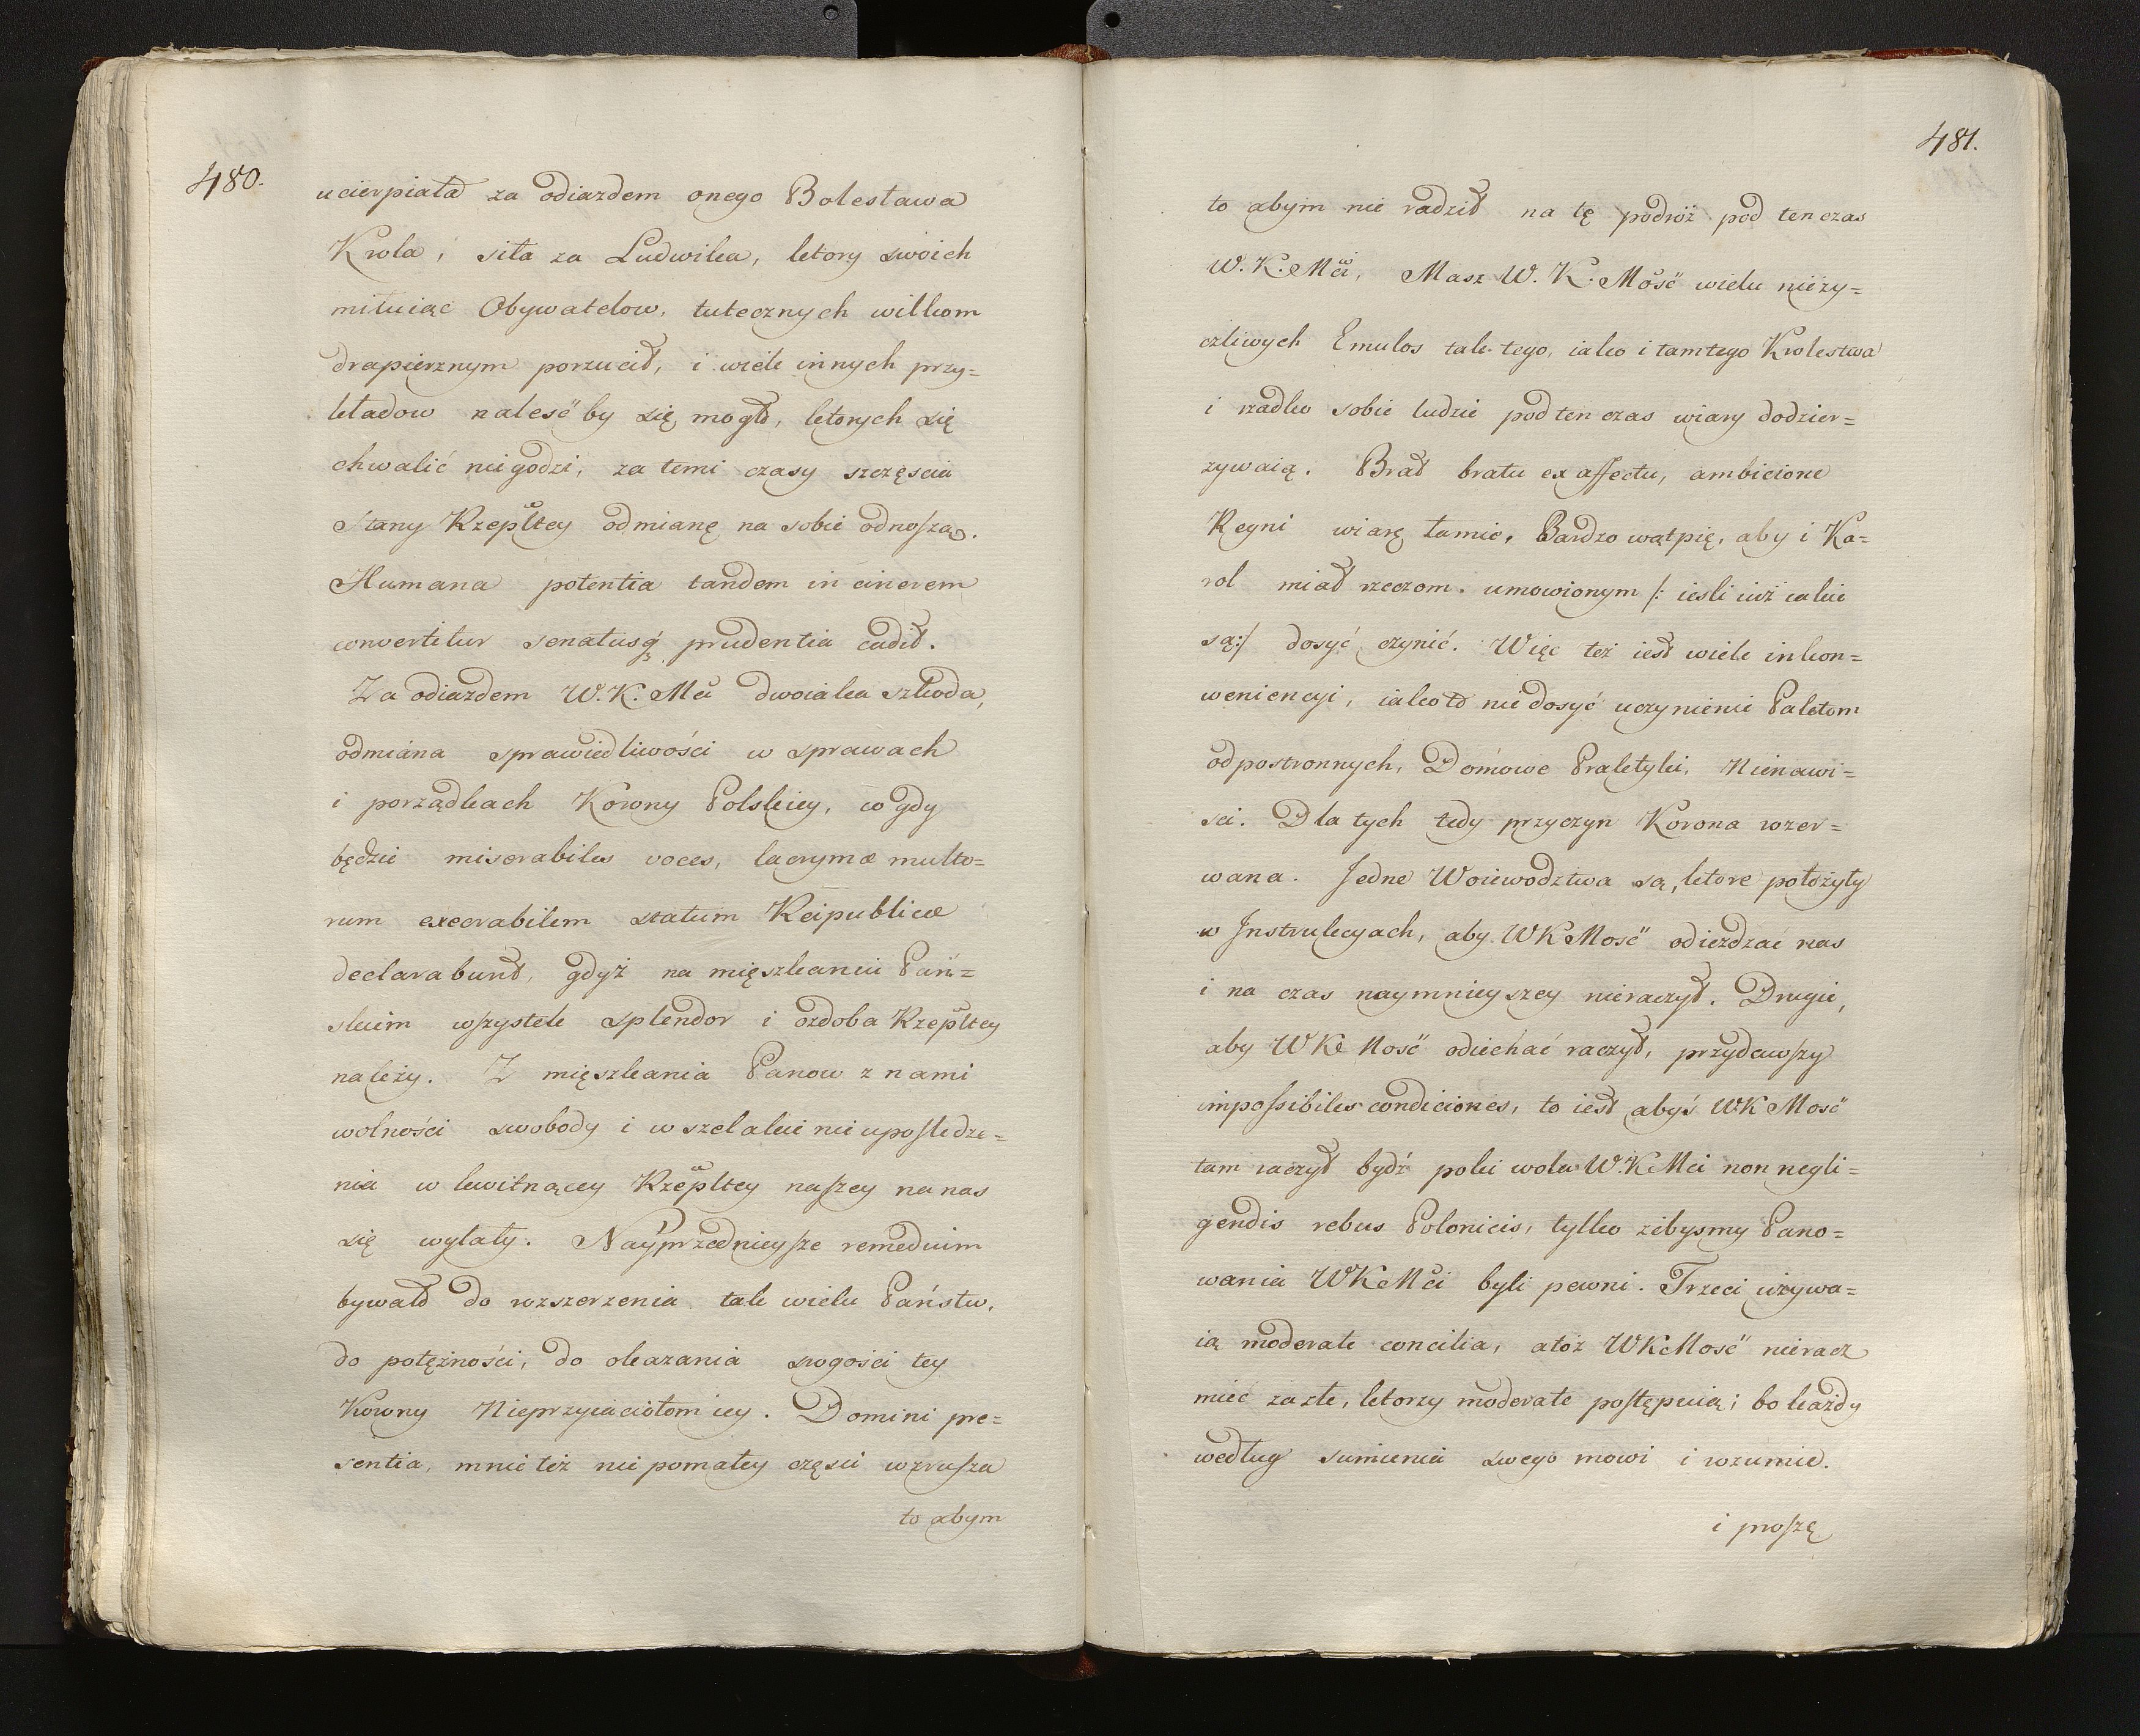 480.
ucierpiała za odiazdem onego Bolesława
Krola, siła za Ludwika, ktory swoich
miłuiąc Obywatelow, tutecznych wilkom
drapierznym porzucił, i wiele innych przy=
kładow naleść by się mogło, ktorych się
chwalić niegodzi, za temi czasy szczęscia
Stany Rzepltey odmianę na sobie odnoszą.
Humana potentia tandem in cinerem
convertitur senatusq prudentia cadit.
Za odiazdem W. K. Mci dwoiaka szkoda,
odmiana sprawiedliwości w sprawach
i porządkach Korony Polskiey, co gdy
będzie miserabiles voces, lacrymæ multo=
rum execrabilem statum Reipublicæ
declarabunt, gdyż na mięszkaniu Pań=
skim wszystek splendor i ozdoba Rzepltey
należy. Z mięszkania Panow z nami
wolności swobody i wszelakie nieupośledze=
nia w kwitnącey Rzepltey naszey na nas
się wylały. Nayprzednieysze remedium
bywało do rozszerzenia tak wielu Państw,
do potężności, do okazania srogości tey
Korony Nieprzyiaciołom iey. Domini pre=
sentia, mnie też nie pomałey częsci wzrusza
to abym
481.
to abym nie radził na tę podróż pod ten czas
W. K. Mci, Masz W. K. Mość wielu nieży=
czliwych Emulos tak tego, iako i tamtego Krolestwa
i rzadko sobie ludzie pod ten czas wiary dodzier=
zywaią. Brat bratu ex affectu, ambicione
Regni wiarę łamie, Bardzo wątpię, aby i Ka=
rol miał rzeczom umowionym /: iesli iuż iakie
są:/ dosyć czynić. Więc też iest wiele inkon=
weniencyi, iako to niedosyć uczynienie Paktom
od postronnych, Domowe Praktyki, Nienawi=
sci. Dla tych tedy przyczyn Korona rozer=
wana. Jedne Woiewodztwa są, ktore położyły
w Instrukcyach, aby WKMość odieżdzać nas
i na czas naymnieyszey nieraczył. Drugie,
aby WKMość odiechać raczył, przydawszy
impossibiles condiciones, to iest abyś WKMość
tam raczył bydź poki wola W. K. Mci non negli=
gendis rebus Polonicis, tylko żebysmy Pano=
wania WKMci byli pewni. Trzeci używa=
ią moderate concilia, a toż WKMość nieracz
mieć za złe, ktorzy moderate postępuią; bo każdy
według sumienia swego mowi i rozumie.
i proszę